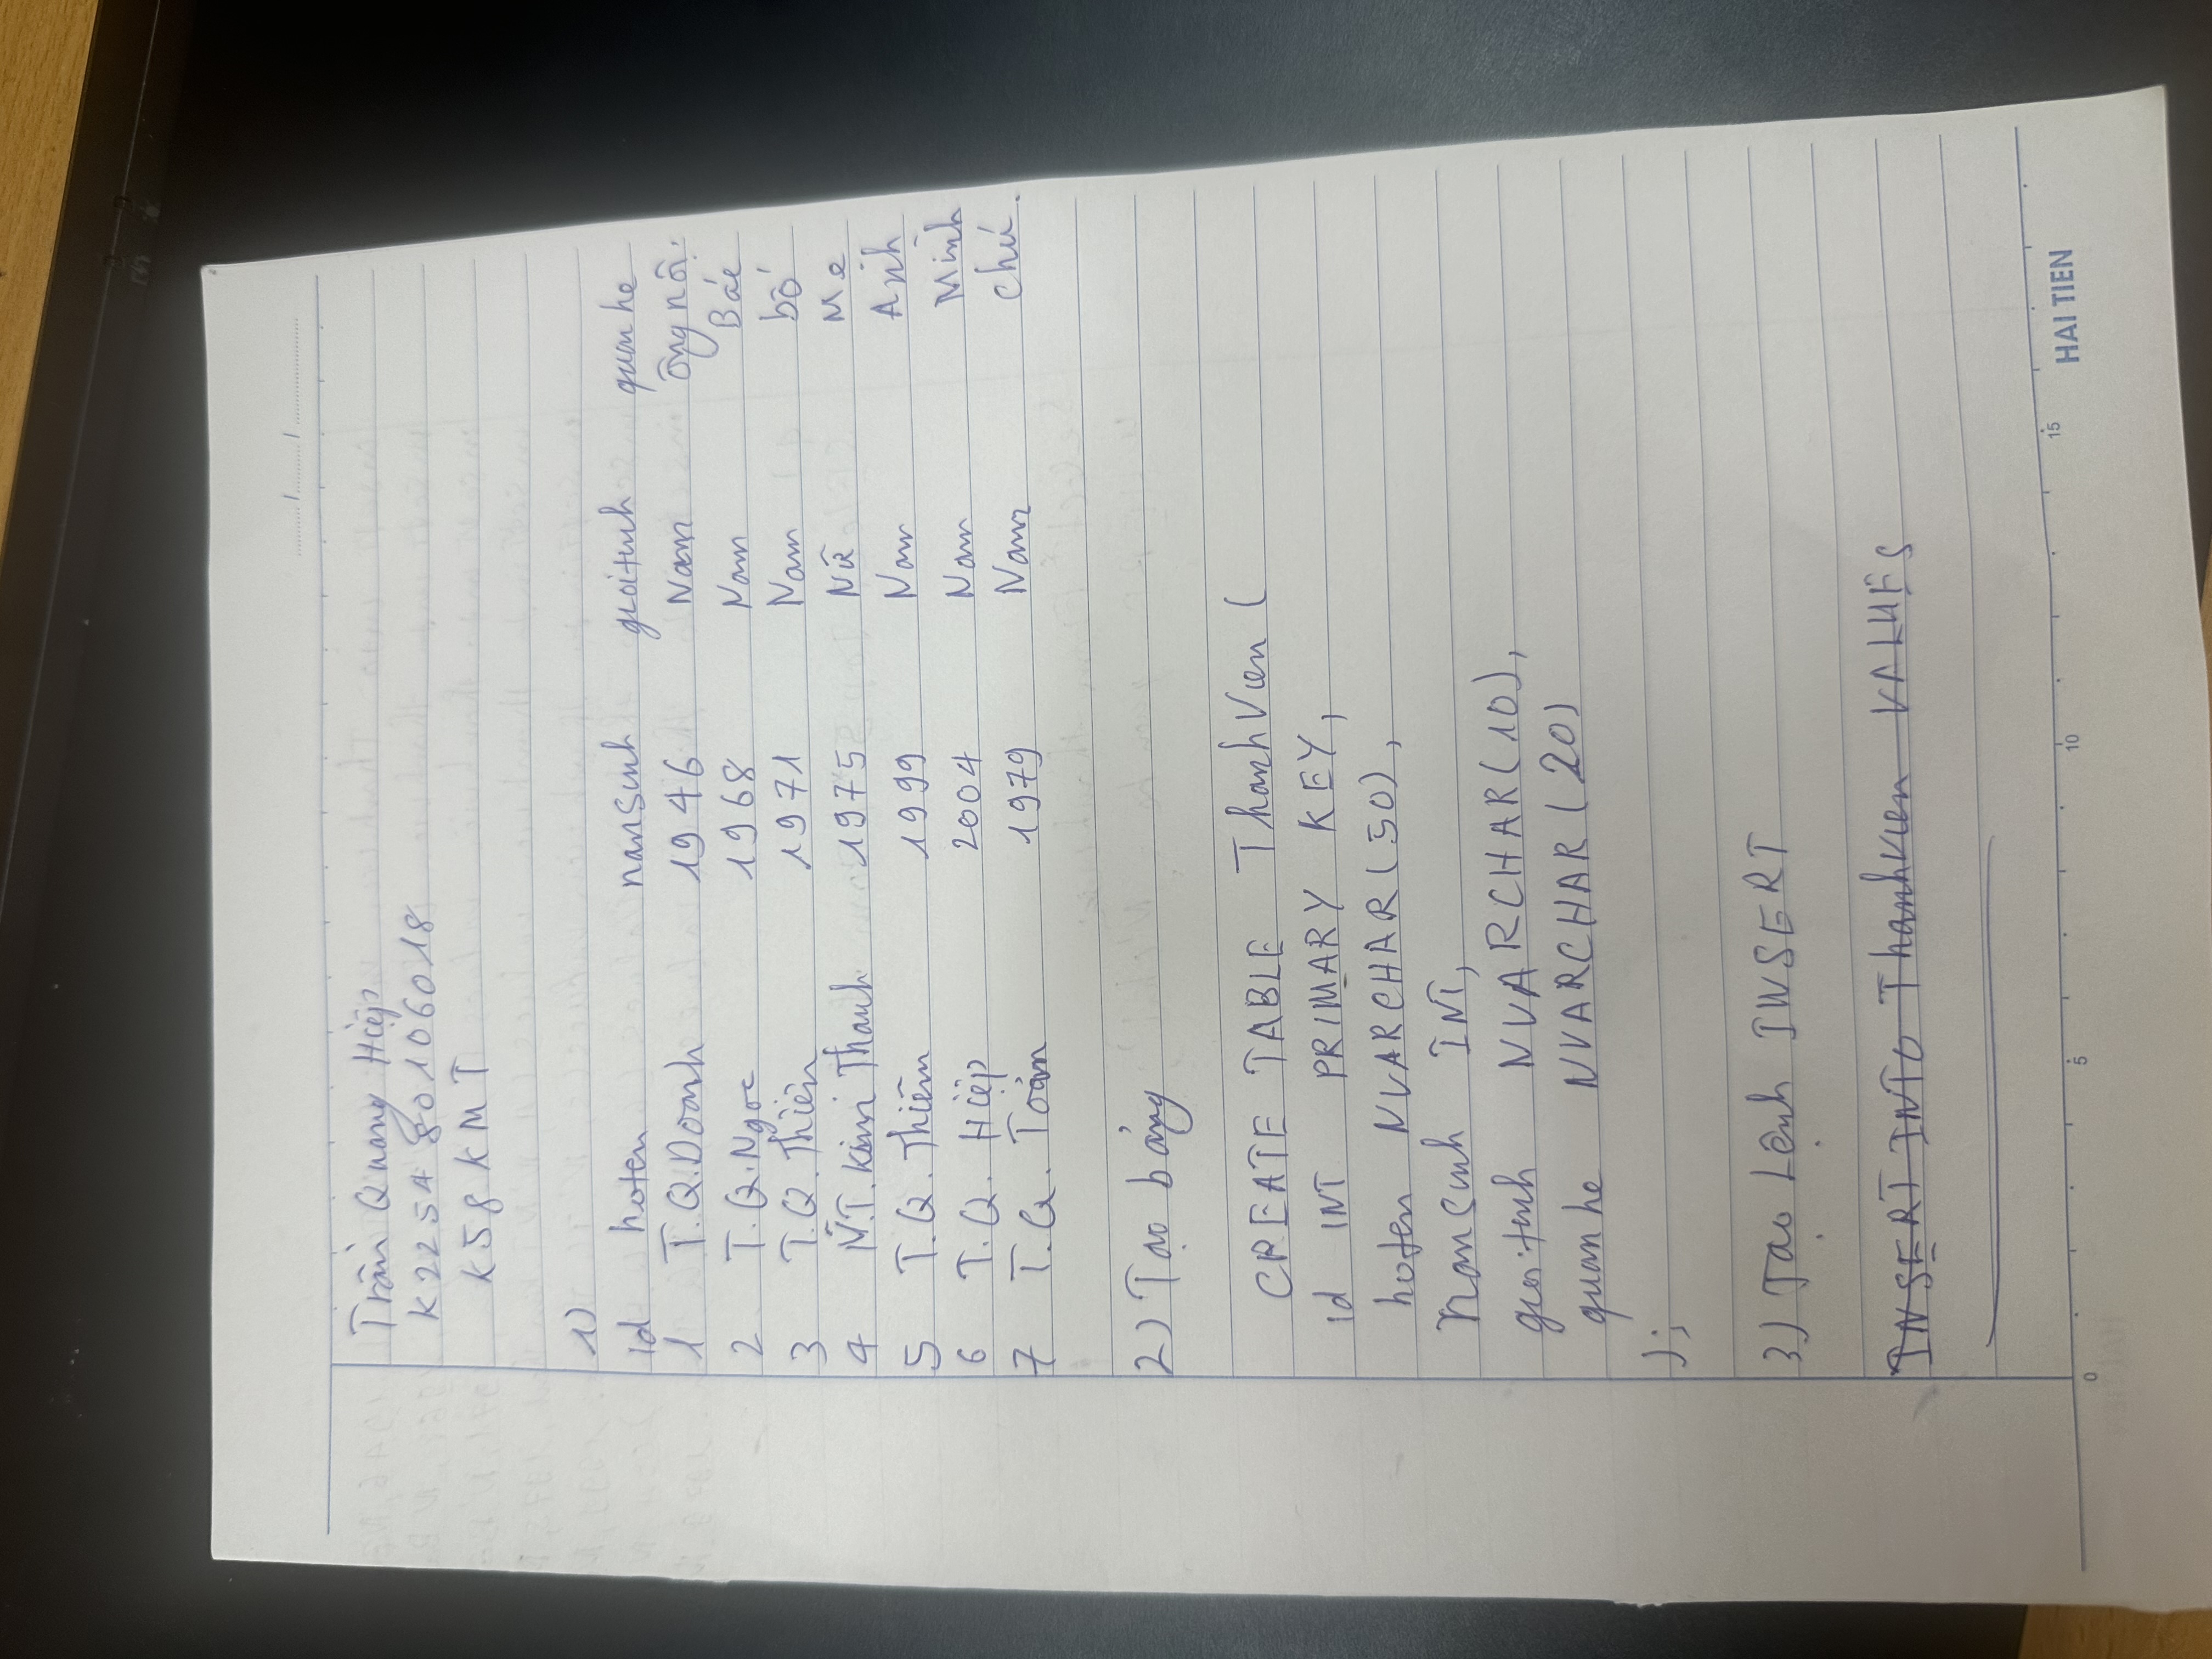 Trần Quang Hiệp
K225480106018
K58KMT
1)
id hoten namsinh gioitinh quanhe
1 T.Q.Doanh 1946 Nam ông nội
2 T.Q.Ngọc 1968 Nam Bác
3 T.Q.Thiên 1971 Nam bố
4 N.T.Kim Thanh 1975 Nữ Mẹ
5 T.Q.Thiêm 1999 Nam Anh
6 T.Q. Hiệp 2004 Nam Mình
7 T.Q. Toản 1979 Nam chú.
2) Tạo bảng
CREATE TABLE ThanhVien (
id INT PRIMARY KEY,
hoten NVARCHAR(50),
namsinh INT,
gioitinh NVARCHAR(10),
quanhe NVARCHAR(20)
);
3) Tạo Lệnh INSERT
INSERT INTO Thanhvien VALUES
0 5 10 15 HAI TIEN